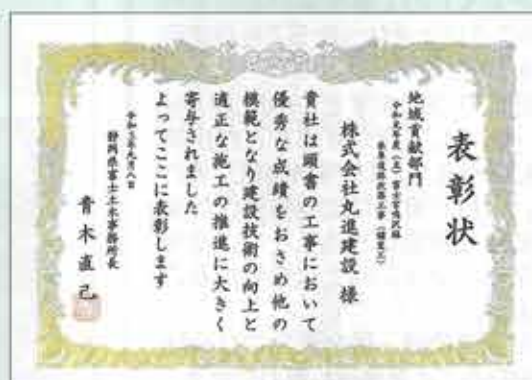 表彰状
地域貢献部門
株式会社丸進建設 様
貴社は頭書の工事において
優秀な成績をおさめ他の
模範となり建設技術の向上と
適正な施工の推進に大きく
寄与されました
よってここに表彰します
静岡県富士土木事務所長
青木直己